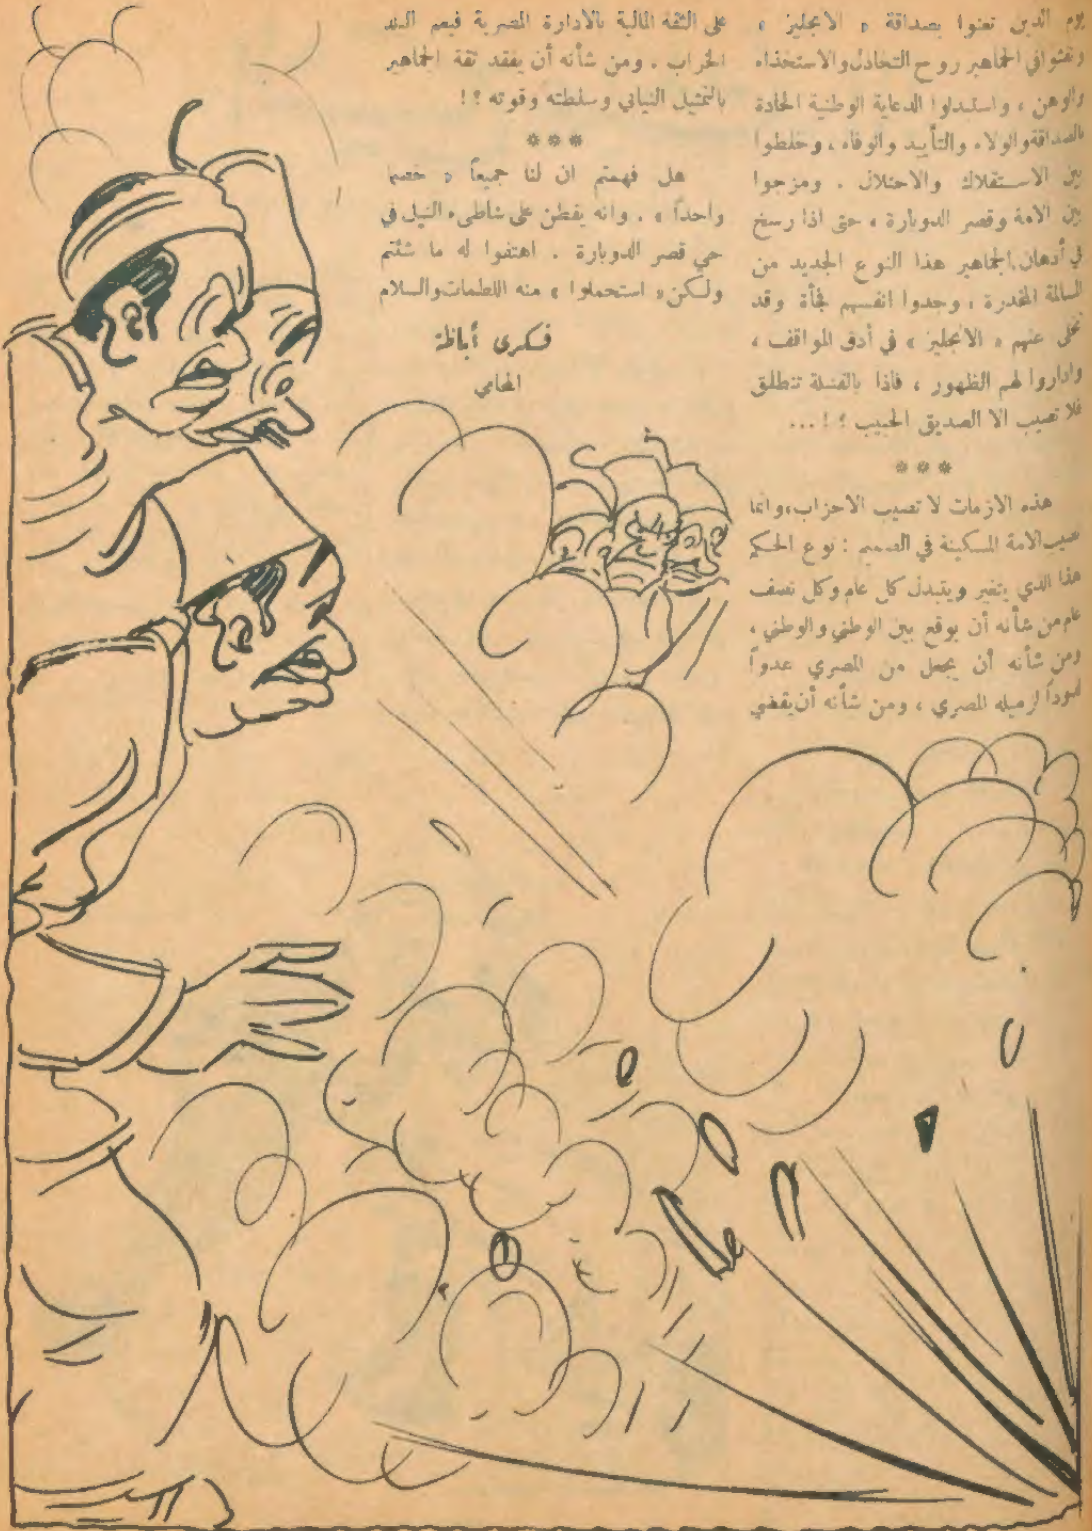 يوم الذين تغنوا بصداقة « الانجليز »
ونفثوا في الجماهير روح التخاذل والاستخذاء
والوهن ، واستبدلوا الدعاية الوطنية الحادة
بالصداقة والولاء والتأييد والوفاء ، وخلطوا
بين الاستقلال والاحتلال . ومزجوا
بين الامة وقصر الدوبارة ، حتى اذا رسخ
في أذهان الجماهير هذا النوع الجديد من
السالمة المخدرة ، وجدوا انفسهم فجأة وقد
تخلى عنهم « الانجليز » في أدق المواقف ،
واداروا لهم الظهور ، فاذا بالقنبلة تنطلق
فلا تصيب الا الصديق الحبيب ؟ ! ...
***
هذه الازمات لا تصيب الاحزاب، وانما
تصيب الامة المسكينة في الصميم : نوع الحكم
هذا الذي يتغير ويتبدل كل عام وكل نصف
عام من شأنه أن يوقع بين الوطني والوطني ،
ومن شأنه أن يجعل من المصري عدواً
لدوداً لزميله المصري ، ومن شأنه أن يقضي
على الثقة المالية بالادارة المصرية فيعم البلد
الخراب . ومن شأنه أن يفقد ثقة الجماهير
بالتمثيل النيابي وسلطته وقوته ؟ !
***
هل فهمتم ان لنا جميعاً « خصما
واحداً » . وانه يقطن على شاطىء النيل في
حي قصر الدوبارة . اهتفوا له ما شئتم
ولكن « استحملوا » منه اللطمات والسلام
فكرى أباظة
المحامي